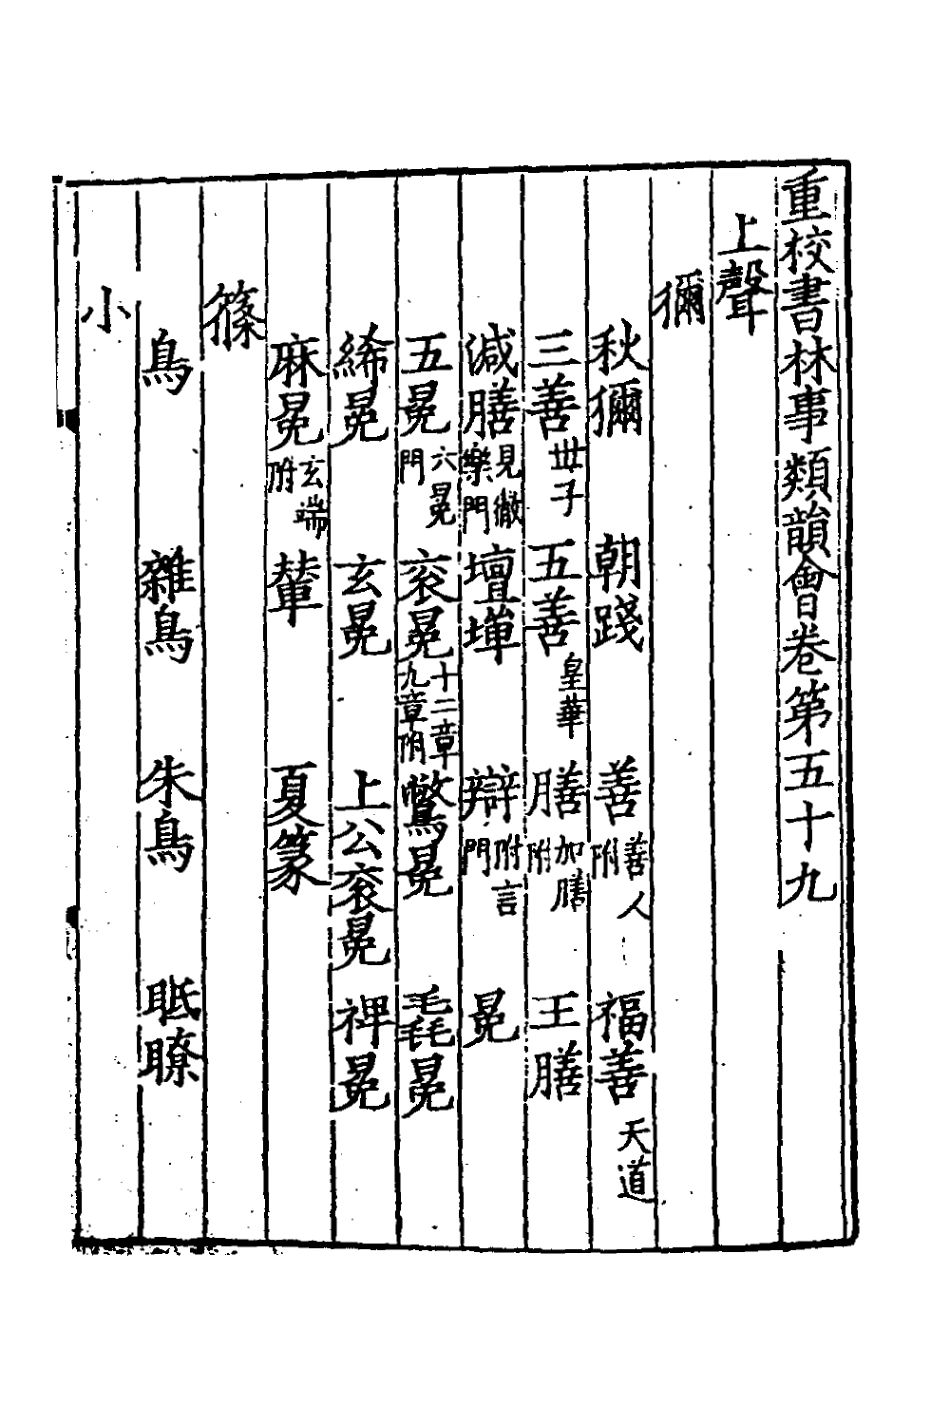 重校書林事類韻會卷第五十九
上聲
獮
秋獮　朝踐　善善人附　福善天道
三善世子　五善皇華　膳加膳附　王膳
減膳見徹樂門　壇墠　辯附言門　冕
五冕六冕門　衮冕十二章九章附　鷩冕　毳冕
絺冕　玄冕　上公衮冕　裨冕
麻冕玄端附　輦　夏篆
篠
鳥　雜鳥　朱鳥　眂瞭
小